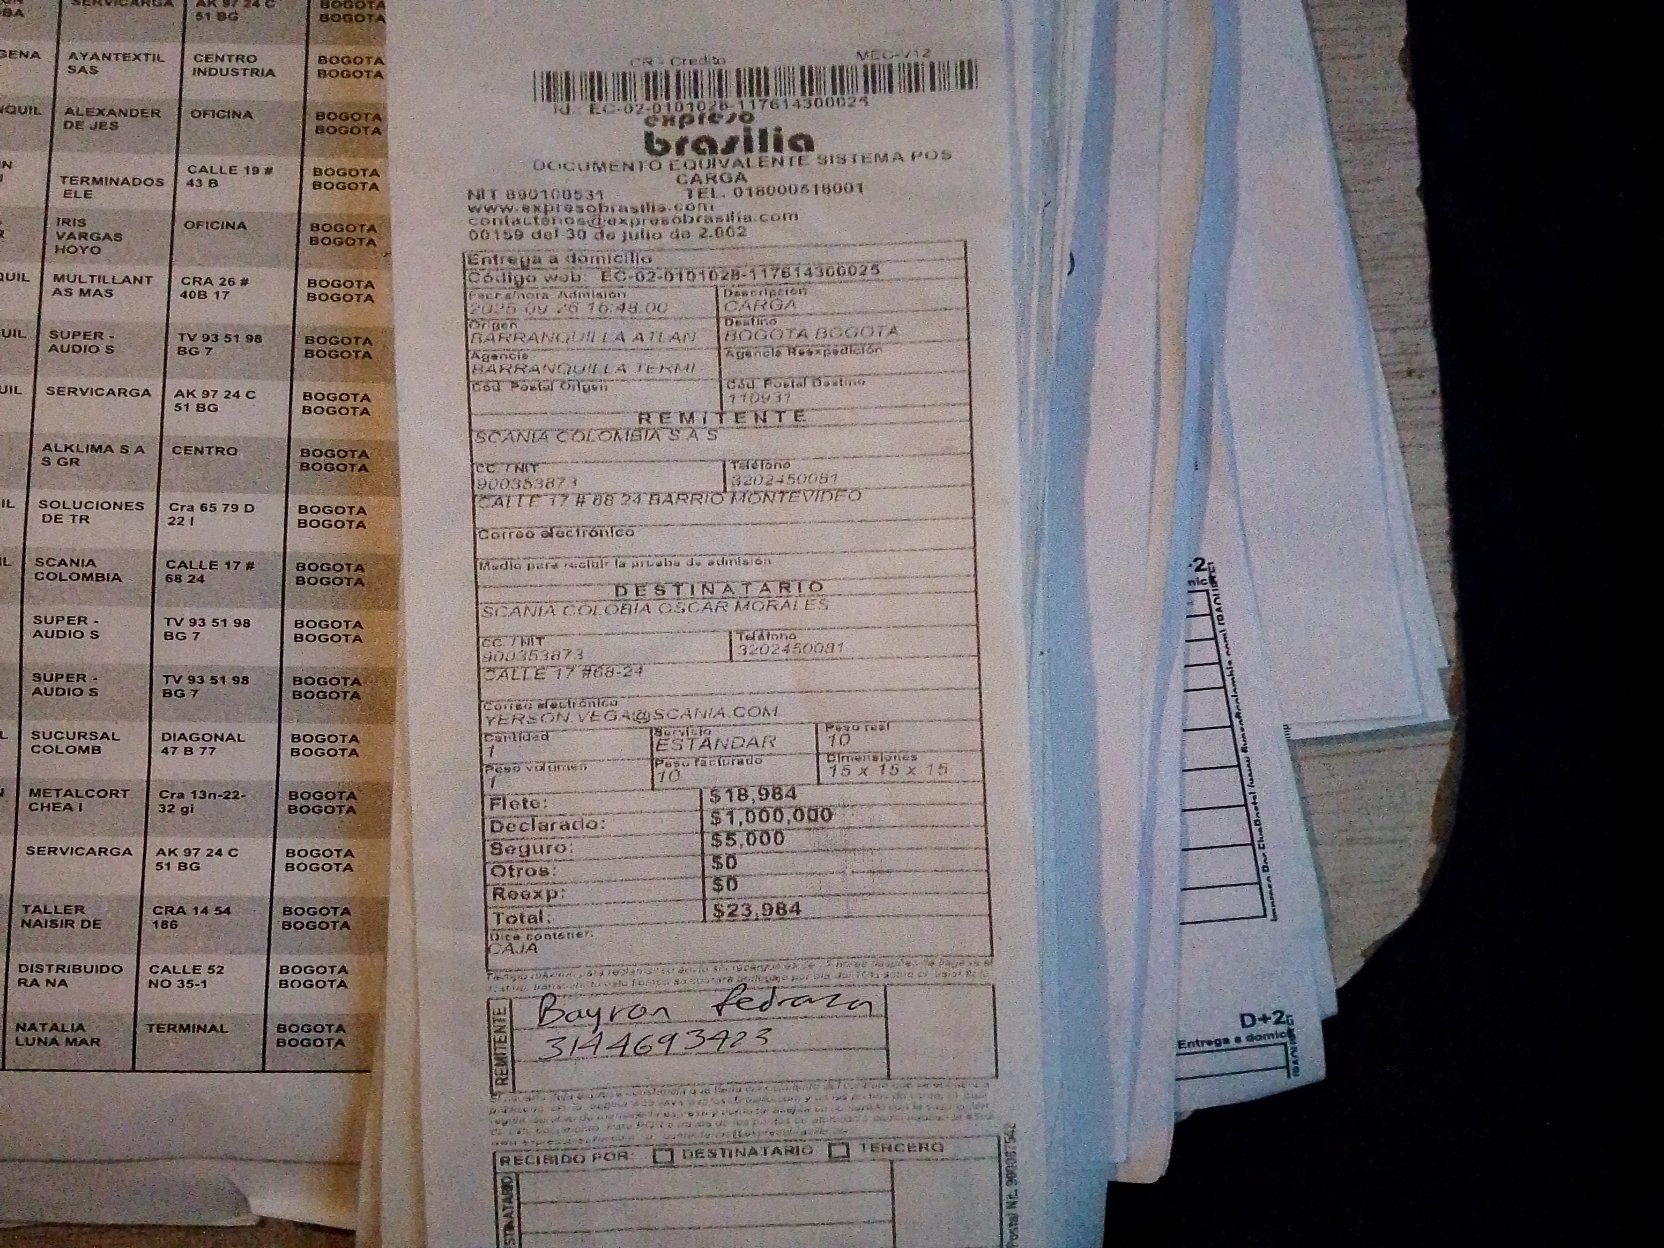 SERVICARGA AK 97 24 C BOGOTA
51 BG BOGOTA
AYANTEXTIL CENTRO BOGOTA
SAS INDUSTRIA BOGOTA
ALEXANDER OFICINA BOGOTA
DE JES BOGOTA
CALLE 19 # BOGOTA
TERMINADOS 43 B BOGOTA
ELE
IRIS OFICINA BOGOTA
VARGAS BOGOTA
HOYO
MULTILLANT CRA 26 # BOGOTA
AS MAS 40B 17 BOGOTA
SUPER - TV 93 51 98 BOGOTA
AUDIO S BG 7 BOGOTA
SERVICARGA AK 97 24 C BOGOTA
51 BG BOGOTA
ALKLIMA S A CENTRO BOGOTA
S GR BOGOTA
SOLUCIONES Cra 65 79 D BOGOTA
DE TR 22 I BOGOTA
SCANIA CALLE 17 # BOGOTA
COLOMBIA 68 24 BOGOTA
SUPER - TV 93 51 98 BOGOTA
AUDIO S BG 7 BOGOTA
SUPER - TV 93 51 98 BOGOTA
AUDIO S BG 7 BOGOTA
SUCURSAL DIAGONAL BOGOTA
COLOMB 47 B 77 BOGOTA
METALCORT Cra 13n-22- BOGOTA
CHEA I 32 gi BOGOTA
SERVICARGA AK 97 24 C BOGOTA
51 BG BOGOTA
TALLER CRA 14 54 BOGOTA
NAISIR DE 186 BOGOTA
DISTRIBUIDO CALLE 52 BOGOTA
RA NA NO 35-1 BOGOTA
NATALIA TERMINAL BOGOTA
LUNA MAR BOGOTA
CR - Credito MEC-V12
Id.: EC-02-0101028-117614300025
expreso
brasilia
DOCUMENTO EQUIVALENTE SISTEMA POS
CARGA
NIT 890100531 TEL. 018000518001
www.expresobrasilia.com
contactenos@expresobrasilia.com
00159 del 30 de julio de 2.002
Entrega a domicilio
Código web: EC-02-0101028-117614300025
Fecha/hora Admisión Descripción
2025-09-26 16:48:00 CARGA
Origen Destino
BARRANQUILLA ATLAN BOGOTA BOGOTA
Agencia Agencia Reexpedición
BARRANQUILLA TERMI
Cód. Postal Origen Cód. Postal Destino
110931
REMITENTE
SCANIA COLOMBIA S A S
CC. / NIT Teléfono
900353873 3202450081
CALLE 17 # 68 24 BARRIO MONTEVIDEO
Correo electrónico
Medio para recibir la prueba de admisión
DESTINATARIO
SCANIA COLOBIA OSCAR MORALES
CC. / NIT Teléfono
900353873 3202450081
CALLE 17 #68-24
Correo electrónico
YERSON.VEGA@SCANIA.COM
Cantidad Servicio Peso real
1 ESTANDAR 10
Peso volumen Peso facturado Dimensiones
1 10 15 x 15 x 15
Flete: $18,984
Declarado: $1,000,000
Seguro: $5,000
Otros: $0
Reexp: $0
Total: $23,984
Dice contener:
CAJA
REMITENTE
Bayron Pedraza
3144693423
RECIBIDO POR: DESTINATARIO TERCERO
D+2
Entrega a domic